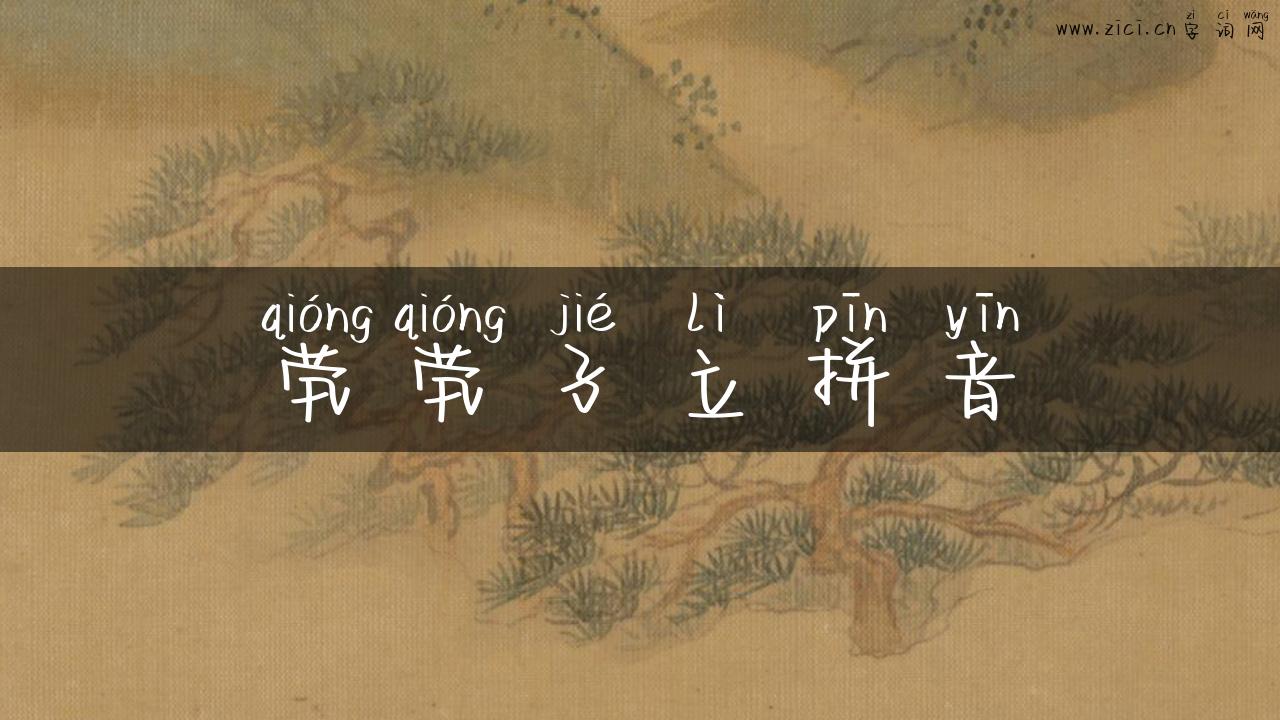 zì cí wǎng
www.zici.cn 字词网
qióng qióng jié lì pīn yīn
茕茕孑立拼音